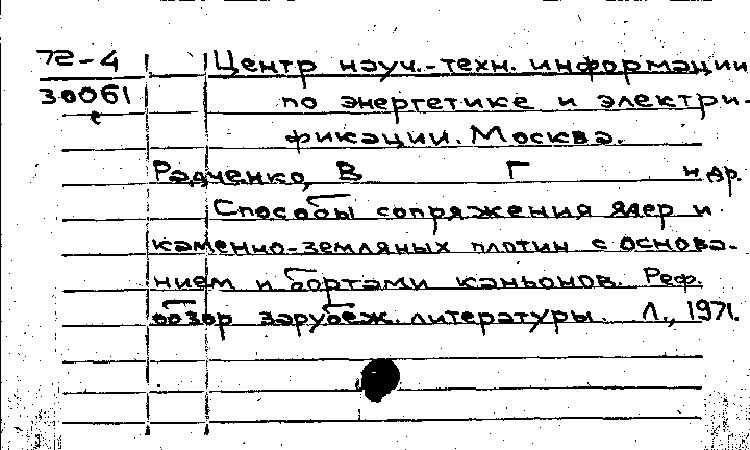 72-4
30061
Центр науч.-техн. информации
по энергетике и электри-
фикации. Москва.
Радченко, В Г и др.
Способы сопряжения ядер и
каменно-земляных плотин с основа-
нием и бортами каньонов. Реф.
обзор зарубеж. литературы. Л., 1971.